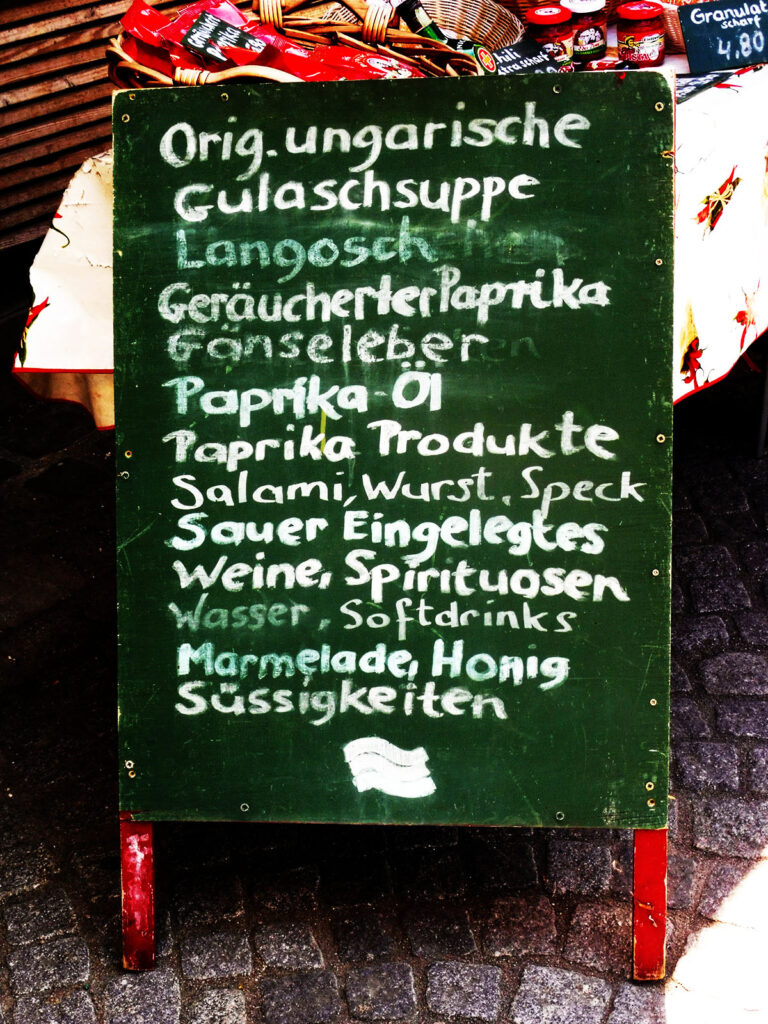 Granulat
scharf
4,80
Orig. ungarische
Gulaschsuppe
Langosch
Geräucherter Paprika
Gänseleber
Paprika-Öl
Paprika Produkte
Salami, Wurst, Speck
Sauer Eingelegtes
Weine, Spirituosen
Wasser, Softdrinks
Marmelade, Honig
Süssigkeiten